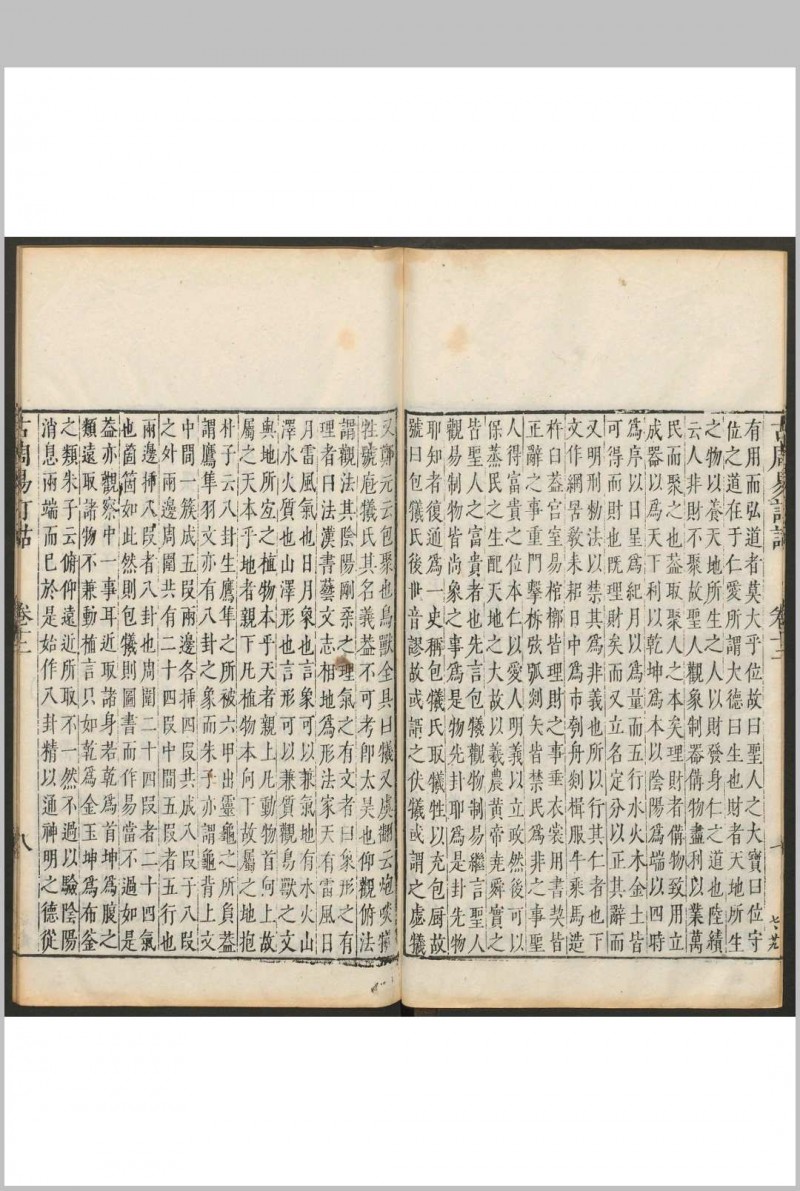 古周易訂詁
卷十二
七
有用而弘道者莫大乎位故曰聖人之大寶曰位守
位之道在于仁愛所謂大德曰生也財者天地所生
之物以養天地所生之人以財發身仁之道也陸績
云人非財不聚故聖人觀象制器備物盡利以業萬
民而聚之也蓋取聚人之本矣理財者備物致用立
成器以為天下利以乾坤為本以陰陽為端以四時
為序以日星為紀月以為量而五行水火木金土皆
可得而財也既理財矣而又立名定分以正其辭而
又明刑勅法以禁其為非義也所以行其仁者也下
文作網罟敎耒耜日中為市刳舟剡楫服牛乘馬造
杵臼葢宮室易棺槨皆理財之事垂衣裳用書契皆
正辭之事重門擊柝弦弧剡矢皆禁民為非之事聖
人得富貴之位本仁以愛人明義以立政然後可以
保蒸民之生配天地之大故以羲農黃帝堯舜實之
皆聖人之富貴者也先言包犧觀物制易繼言聖人
觀易制物皆尚象之事為是物先卦耶為是卦先物
耶知者復通為一史稱包犧氏取犧牲以充包厨故
號曰包犧氏後世音謬故或謂之伏犧或謂之虙犧
又鄭元云包聚也鳥獸全具曰犧又虞翻云炮啖犧
牲號庖犧氏其名義葢不可考卽太昊也仰觀俯法
謂觀法其陰陽剛柔之理氣之有文者曰象形之有
理者曰法漢書藝文志相地爲形法家天有雷風日
月雷風氣也日月象也言象可以兼氣地有水火山
澤水火質也山澤形也言形可以兼質觀鳥獸之文
與地所宜之植物本乎天者親上凡動物首向上故
屬之天本乎地者親下凡植物本向下故屬之地抱
朴子云八卦生鷹隼之所被六甲出靈龜之所負葢
謂鷹隼羽文亦有八卦之象而朱子亦謂龜背上文
中間一簇成五段兩邊各挿四段共成八段于八段
之外兩邊周圍共有二十四段中間五段者五行也
兩邊挿八段者八卦也周圍二十四段者二十四氣
也箇箇如此然則包犧則圖書而作易當不過如是
葢亦觀察中一事耳近取諸身若乾爲首坤爲腹之
類遠取諸物不兼動植言只如乾爲金玉坤爲布釜
之類朱子云俯仰遠近所取不一然不過以驗陰陽
消息兩端而已於是始作八卦精以通神明之德從
古周易訂詁
卷十二
八